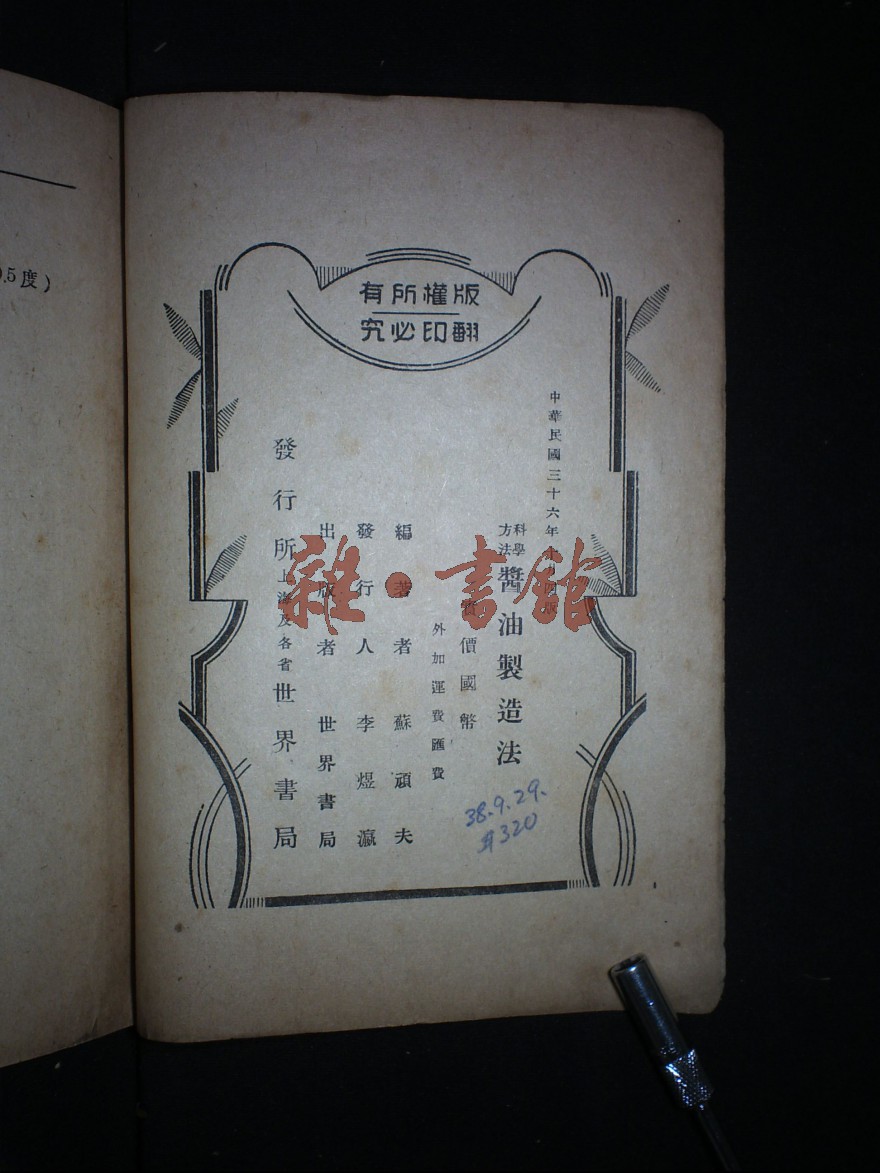 版權所有
翻印必究
中華民國三十六年
科學方法 醬油製造法
價國幣
外加運費匯費
編著者 蘇頑夫
發行人 李煜瀛
出版者 世界書局
發行所 上海及各省 世界書局
38.9.29.
320
雜·書館
.5度)